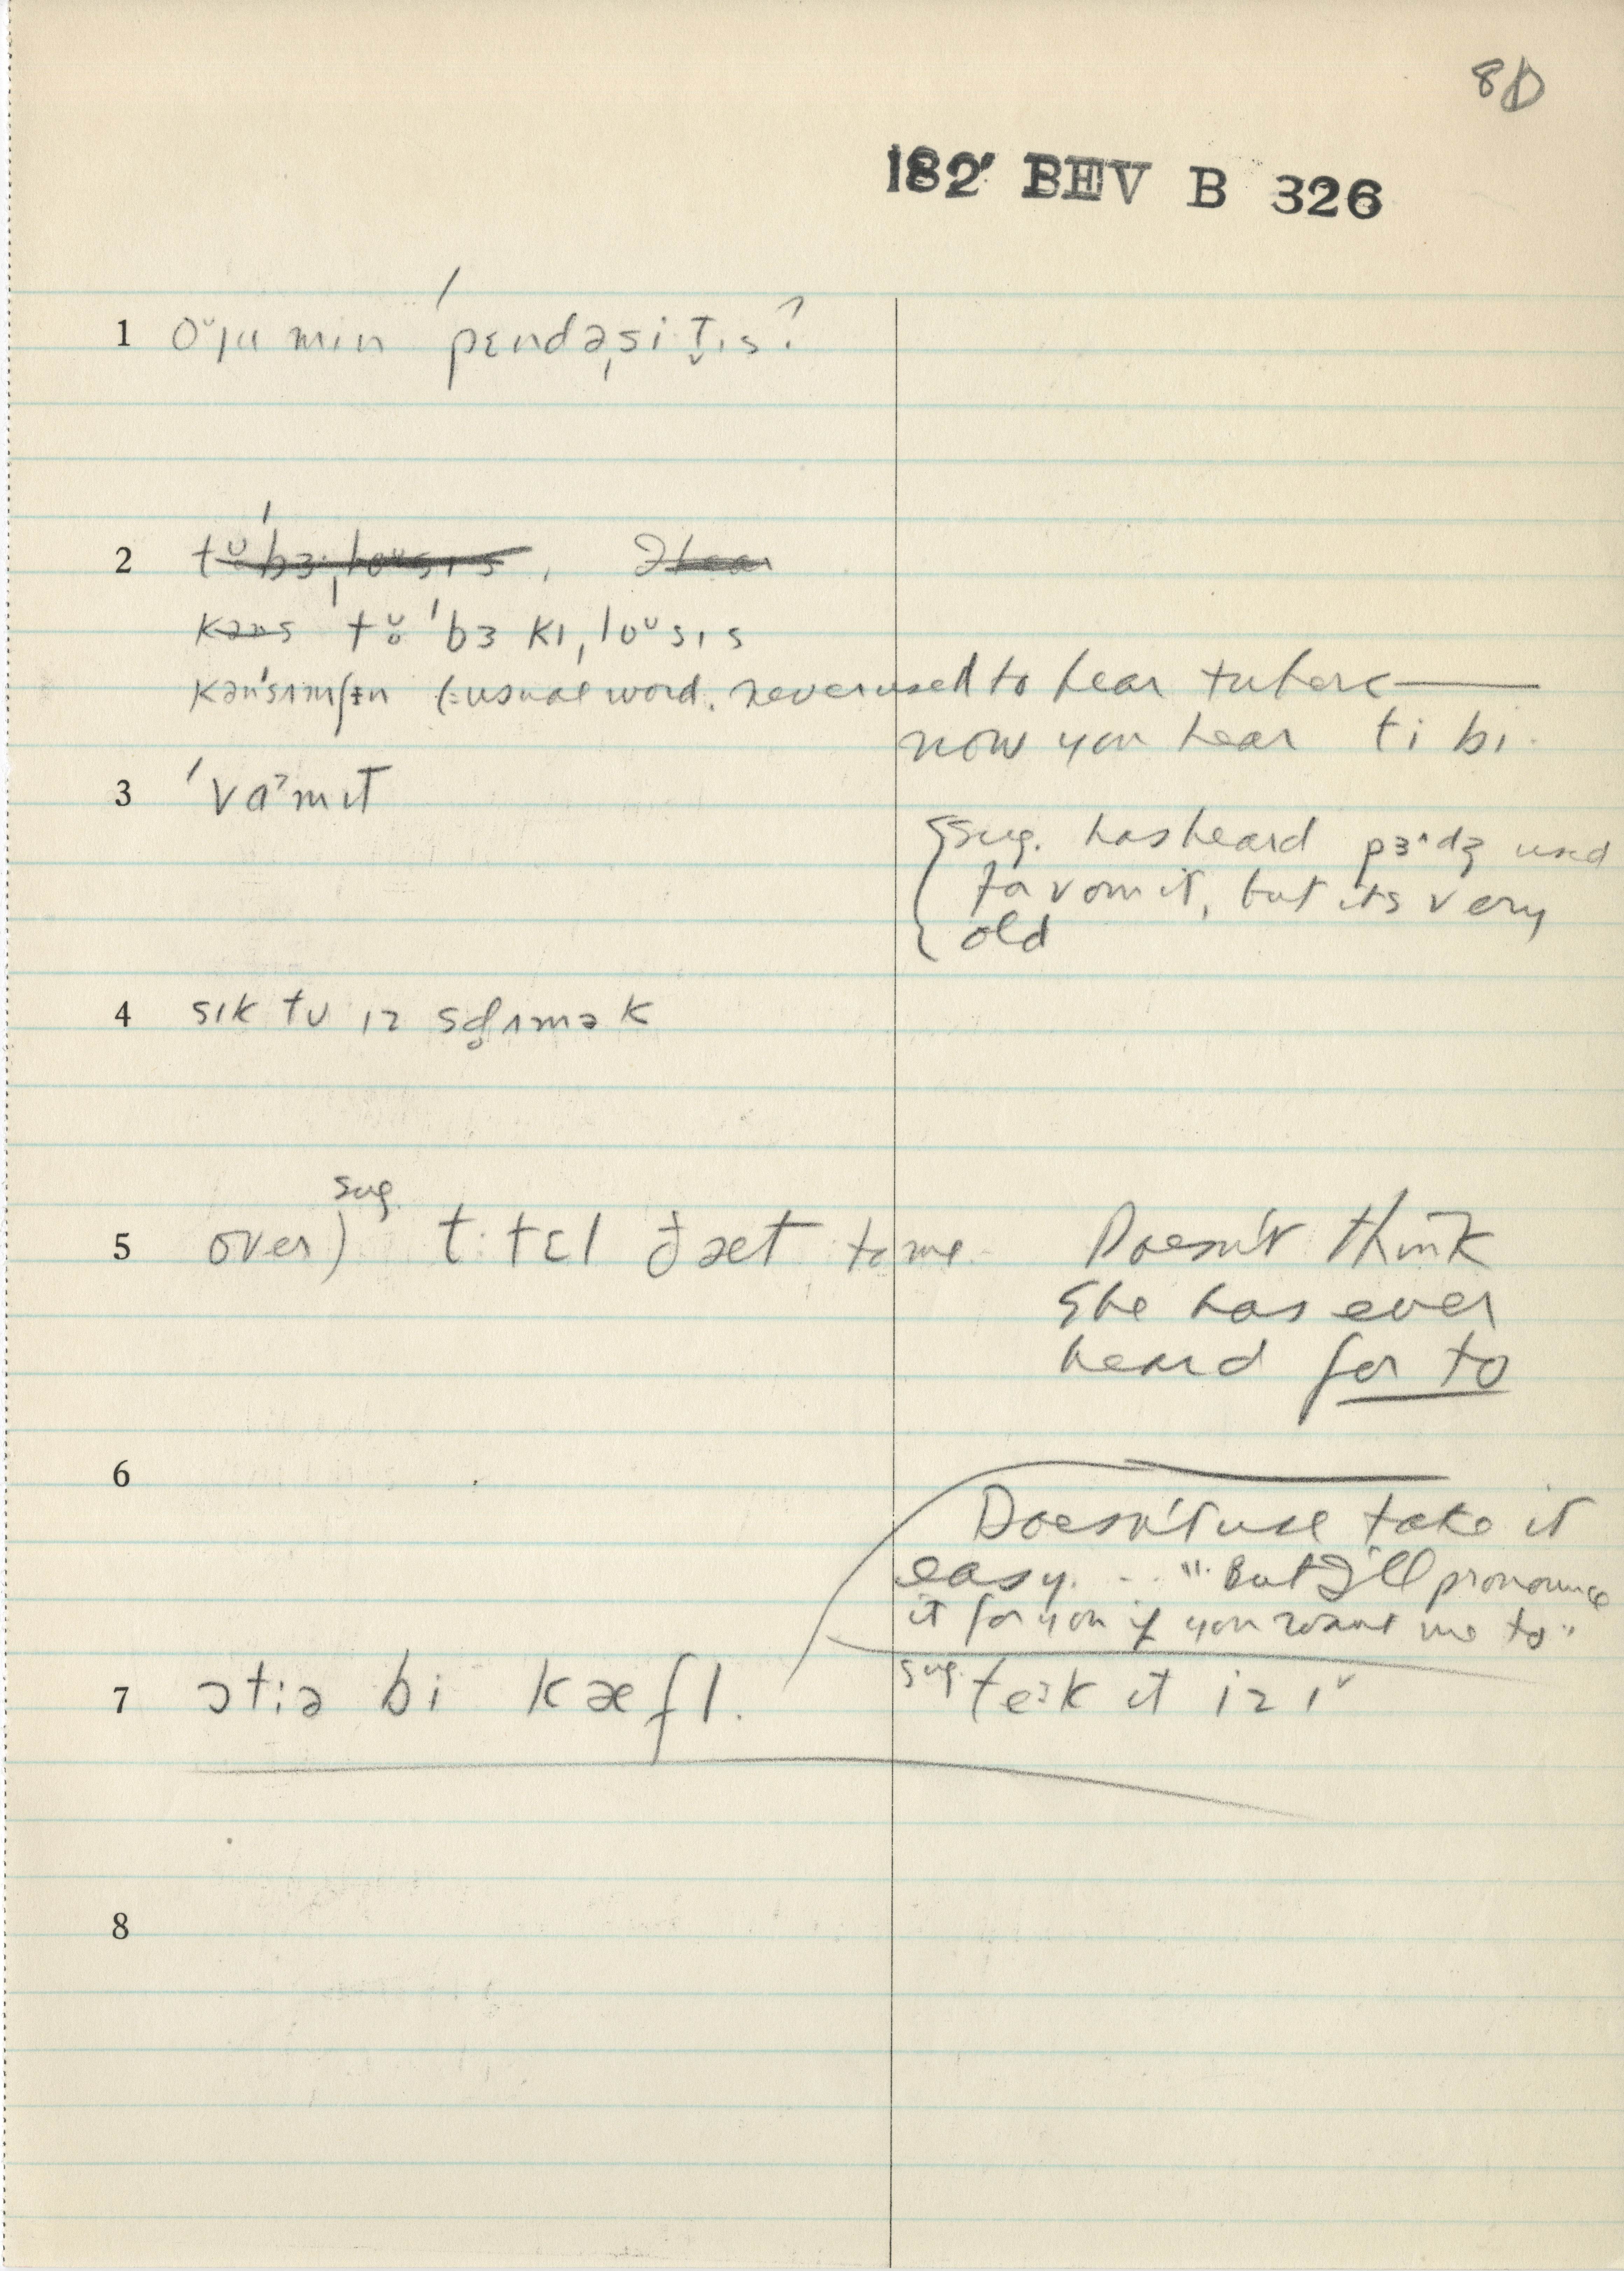 8D
182' BHV B 326
1 oᵛju min ˈpɛndəˌsiT̬ɪs?
2 tʊ̥ˈbɜˌloᵘsɪs,
kəns tʊ̥ ˈbɜ kɪˌloᵘsɪs
kənˈsɪmʃɪn (=usual word. never used to hear tuberc——
now you hear ti bi.
3 ˈvɑˀmɪT
{sug. has heard pɜ^dʒ used
for vomit, but its very
old
4 sɪk tu ɪz sd̥ʌmək
sug.
5 over) t. tɛl ðæt to me. Doesn't think
she has ever
heard for to
6
Doesn't use take it
easy. ... "But I'll pronounce
it for you if you want me to"
7 ɔtiə bi kæfl. sug. teˀk it izɪˇ
8